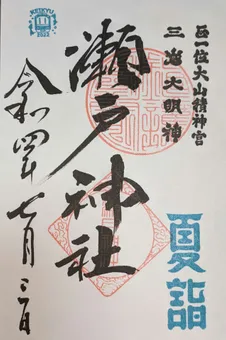 正一位大山積神宮
三島大明神
瀬戸神社
夏詣
令和四年七月三日